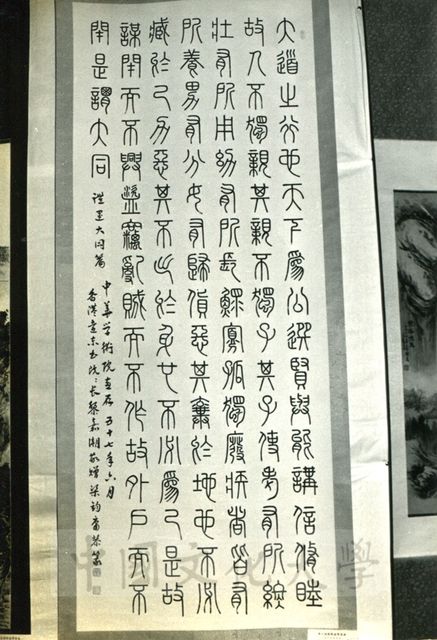 大道之行也天下爲公選賢與能講信脩睦
故人不獨親其親不獨子其子使老有所終
壯有所用幼有所長鰥寡孤獨廢疾者皆有
所養男有分女有歸貨惡其棄於地也不必
藏於己力惡其不出於身也不必爲己是故
謀閉而不興盜竊亂賊而不作故外戶而不
閉是謂大同 禮運大同篇
中華學術院惠存 五十七年六月
香港遠東書院〻長黎嘉潮敬贈 梁鈞 恭篆
中國文化大學